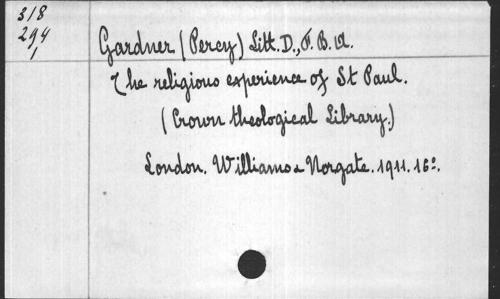 318
294
1
Gardner (Percy) Litt. D., F. B. A.
The religious experience of St Paul.
(Crown theological Library.)
London. Williams & Norgate. 1911. 16º.